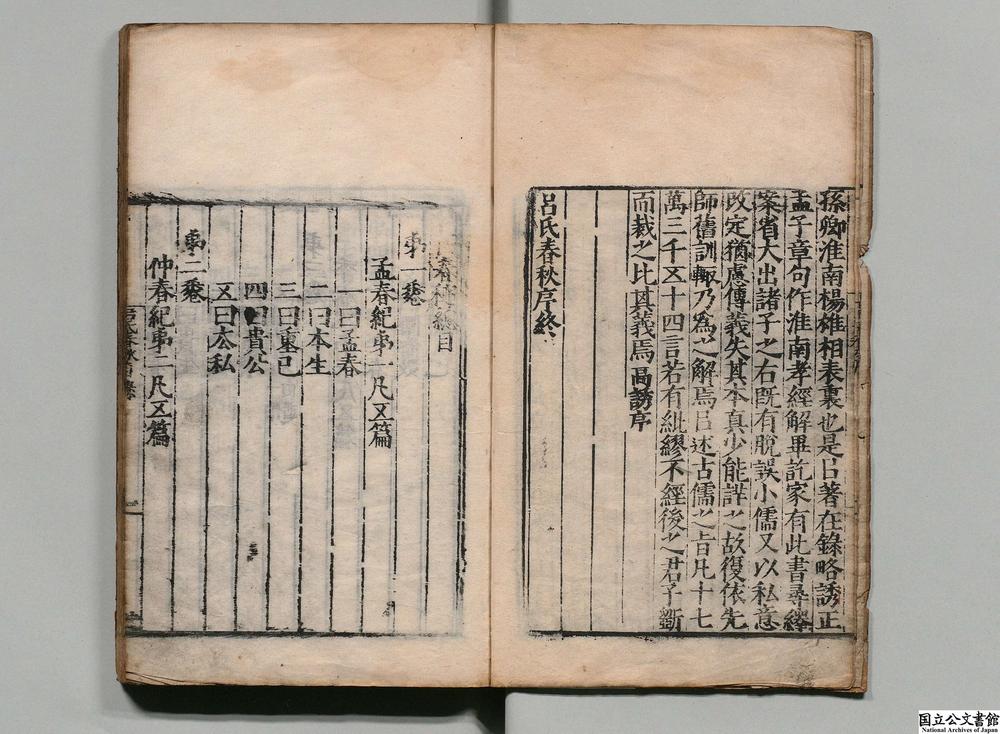 孫卿淮南楊雄相表裏也是㠯著在錄略誘正
孟子章句作淮南孝經解畢訖家有此書尋繹
案省大出諸子之右既有脫誤小儒又以私意
改定猶慮傳義失其本真少能詳之故復依先
師舊訓輙乃為之解焉㠯述古儒之旨凡十七
萬三千五十四言若有紕繆不經後之君子斷
而裁之比其義焉高誘序
呂氏春秋序終
春秋總目
第一卷
孟春紀第一凡五篇
一曰孟春
二曰本生
三曰重己
四曰貴公
五曰去私
第二卷
仲春紀第二凡五篇
国立公文書館
National Archives of Japan